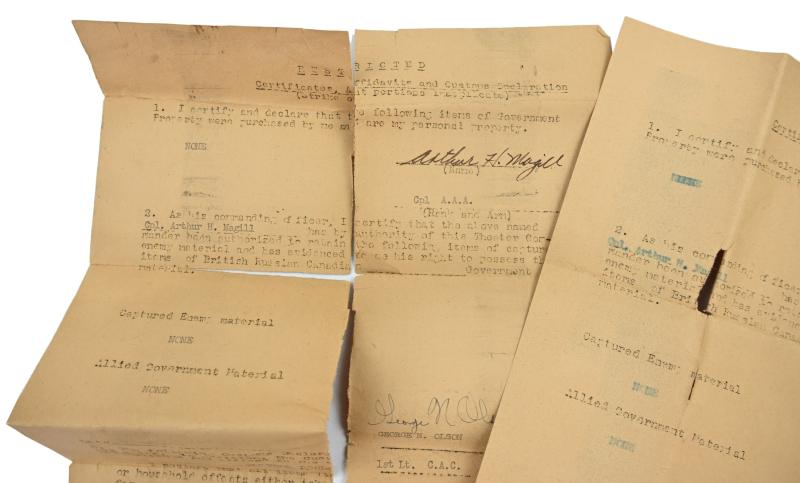 RESTRICTED
Certificates, Affidavits and Customs Declaration
(Strike out portions
1. I certify and declare that the following items of Government
Property were purchased by me and are my personal property.
NONE
Arthur H. Magill
(Name)
Cpl A.A.A.
(Rank and Arm)
2. As his commanding officer, I certify that the above named
Cpl. Arthur H. Magill has by authority of this Theater Com-
mander been authorized to retain the following items of captur
enemy material and has evidenced to me his right to possess the
items of British Russian Canadia Government
material.
Captured Enemy material
NONE
Allied Government Material
NONE
George N Ols
GEORGE N. OLSON
1st Lt. C.A.C.
or household effects either
1. I certify and declare
Property were purchased
NONE
2. As his commanding officer
Cpl. Arthur H. Magill has
mander been authorized to retain
enemy material and has evidence
items of British Russian Canad
material.
Captured Enemy material
NONE
Allied Government Material
NONE